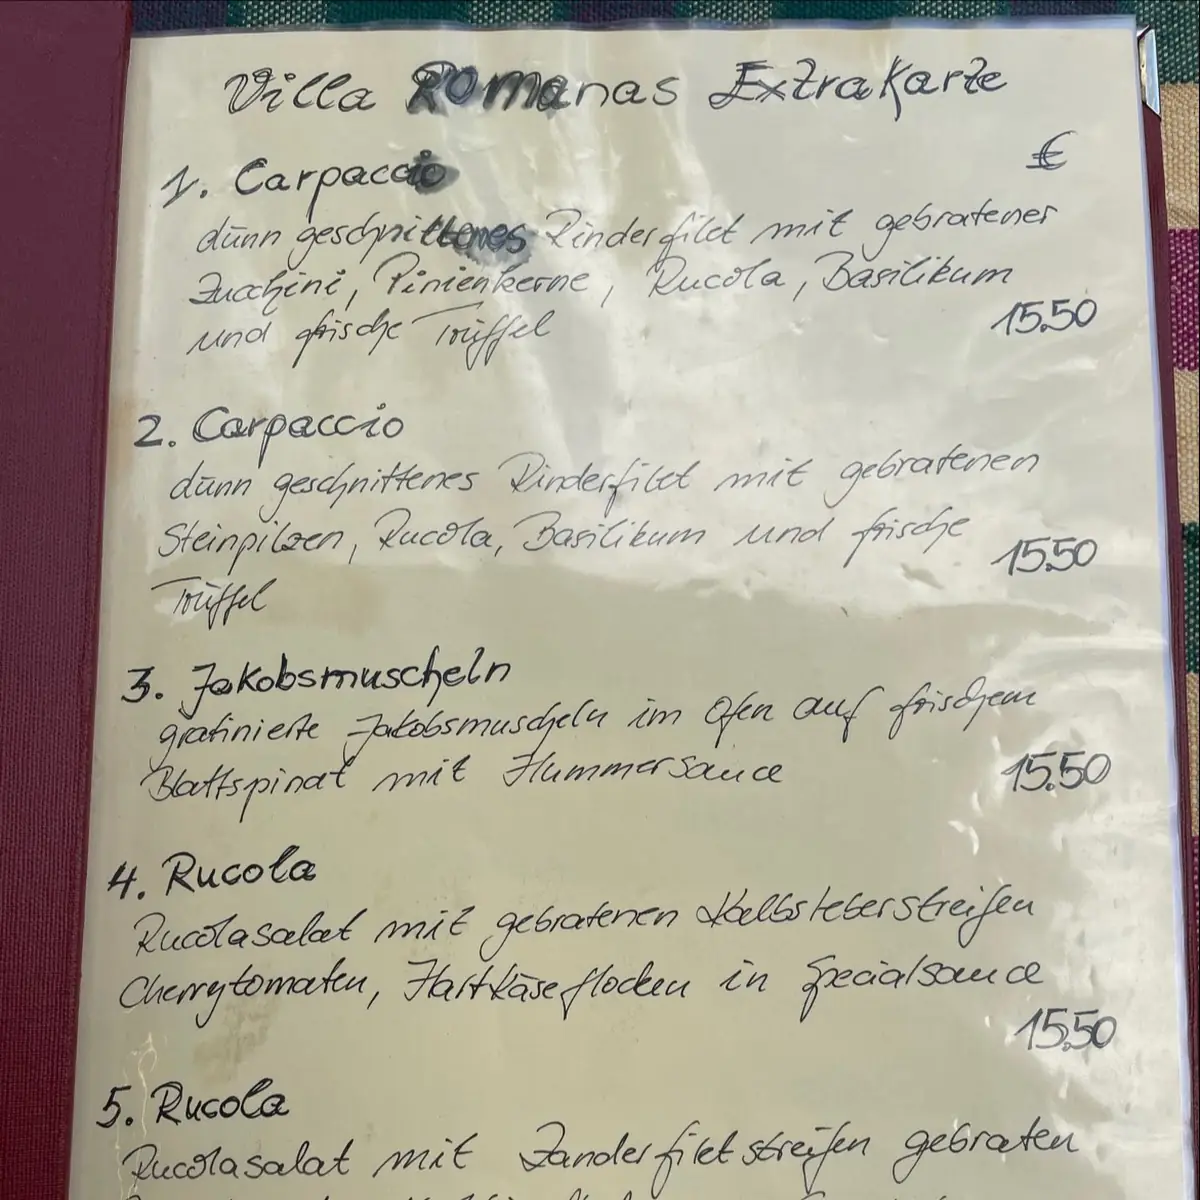 Villa Romanas Extrakarte
€
1. Carpaccio
dünn geschnittenes Rinderfilet mit gebratener
Zucchini, Pinienkerne, Rucola, Basilikum
und frische Trüffel 15.50
2. Carpaccio
dünn geschnittenes Rinderfilet mit gebratenen
Steinpilzen, Rucola, Basilikum und frische
Trüffel 15.50
3. Jakobsmuscheln
gratinierte Jakobsmuscheln im Ofen auf frischem
Blattspinat mit Hummersauce 15.50
4. Rucola
Rucolasalat mit gebratenen Kalbsleberstreifen
Cherrytomaten, Hartkäseflocken in Specialsauce
15.50
5. Rucola
Rucolasalat mit Zanderfiletstreifen gebraten